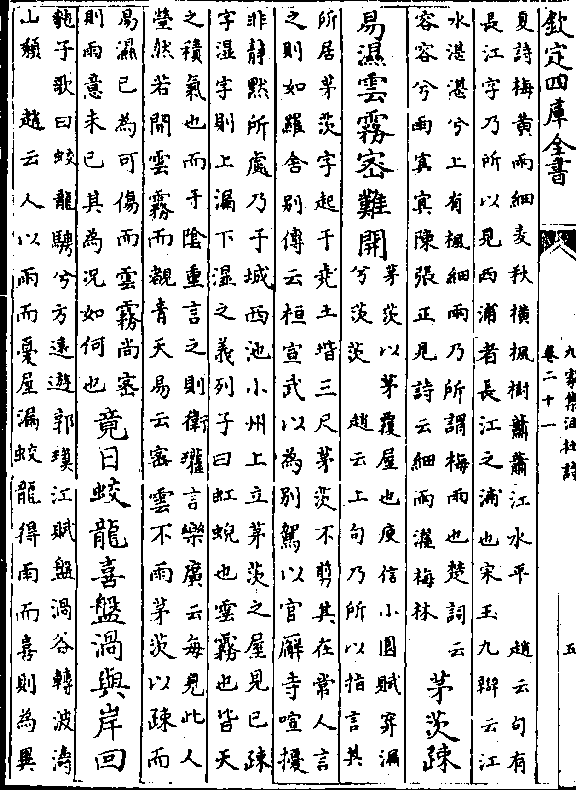 欽定四庫全書
九家集注杜詩
卷二十一
五
夏詩梅黃雨細麥秋橫楓樹蕭蕭江水平 趙云句有
長江字乃所以見西浦者長江之浦也宋玉九辯云江
水湛湛兮上有楓細雨乃所謂梅雨也楚詞云
容容兮雨冥冥陳張正見詩云細雨濯梅林
茅茨疎
易濕雲霧密難開
茅茨以茅覆屋也庾信小園賦穿漏
兮茨茨 趙云上句乃所以指言其
所居茅茨字起于堯土堦三尺茅茨不剪其在常人言
之則如羅含别傳云桓宣武以為别駕以官廨寺喧擾
非静黙所處乃于城西池小州上立茅茨之屋見已疎
字湿字則上漏下濕之義列子曰虹蜺也雲霧也皆天
之積氣也而于陰重言之則衛瓘言樂廣云每見此人
瑩然若開雲霧而覩青天易云密雲不雨茅茨以疎而
易濕已為可傷而雲霧尚密
則雨意未已其為况如何也
竟日蛟龍喜盤渦與岸回
㐌子歌曰蛟龍騁兮方逺遊郭璞江賦盤渦谷轉波濤
山頽 趙云人以雨而憂屋漏蛟龍得雨而喜則為異